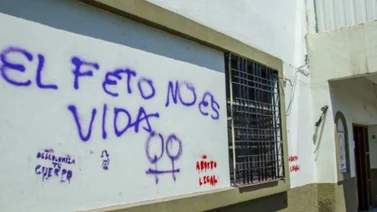 EL FETO NO ES
VIDA
DESCOLONIZA
TU
CUERPO
ABORTO
LEGAL
ABORTO
LEGAL